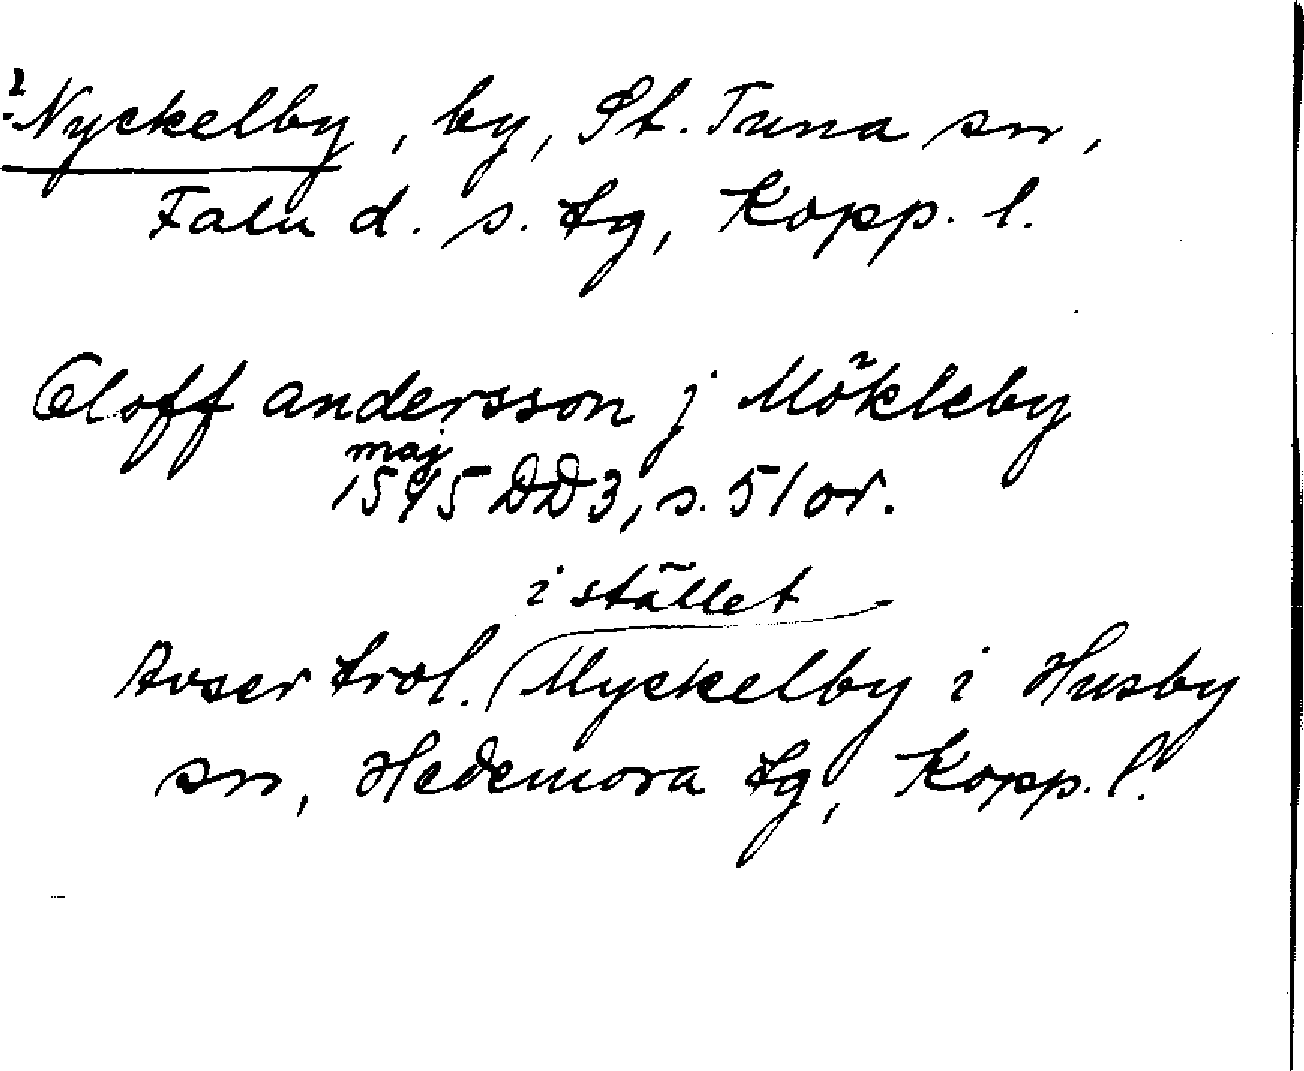 ?Nyckelby, by, St. Tuna sn,
Falu d. s. tg, Kopp. l.
Oloff andersson j Mökleby
maj
1545 DD3, s. 51 or.
i stället
Avser trol. Myckelby i Husby
sn, Hedemora tg, Kopp. l.